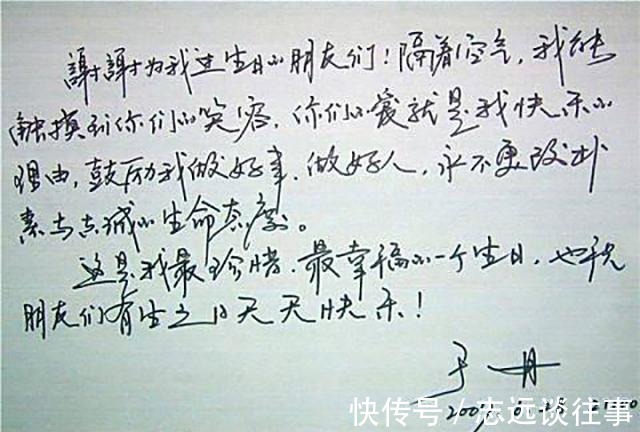 謝謝为我过生日的朋友们！隔着空气，我能
触摸到你们的笑容，你们的爱就是我快乐的
理由，鼓励我做好事，做好人，永不更改朴
素与真诚的生命态度。
这是我最珍惜、最幸福的一个生日，也祝
朋友们有生之日天天快乐！
于丹
快传号/志远谈往事